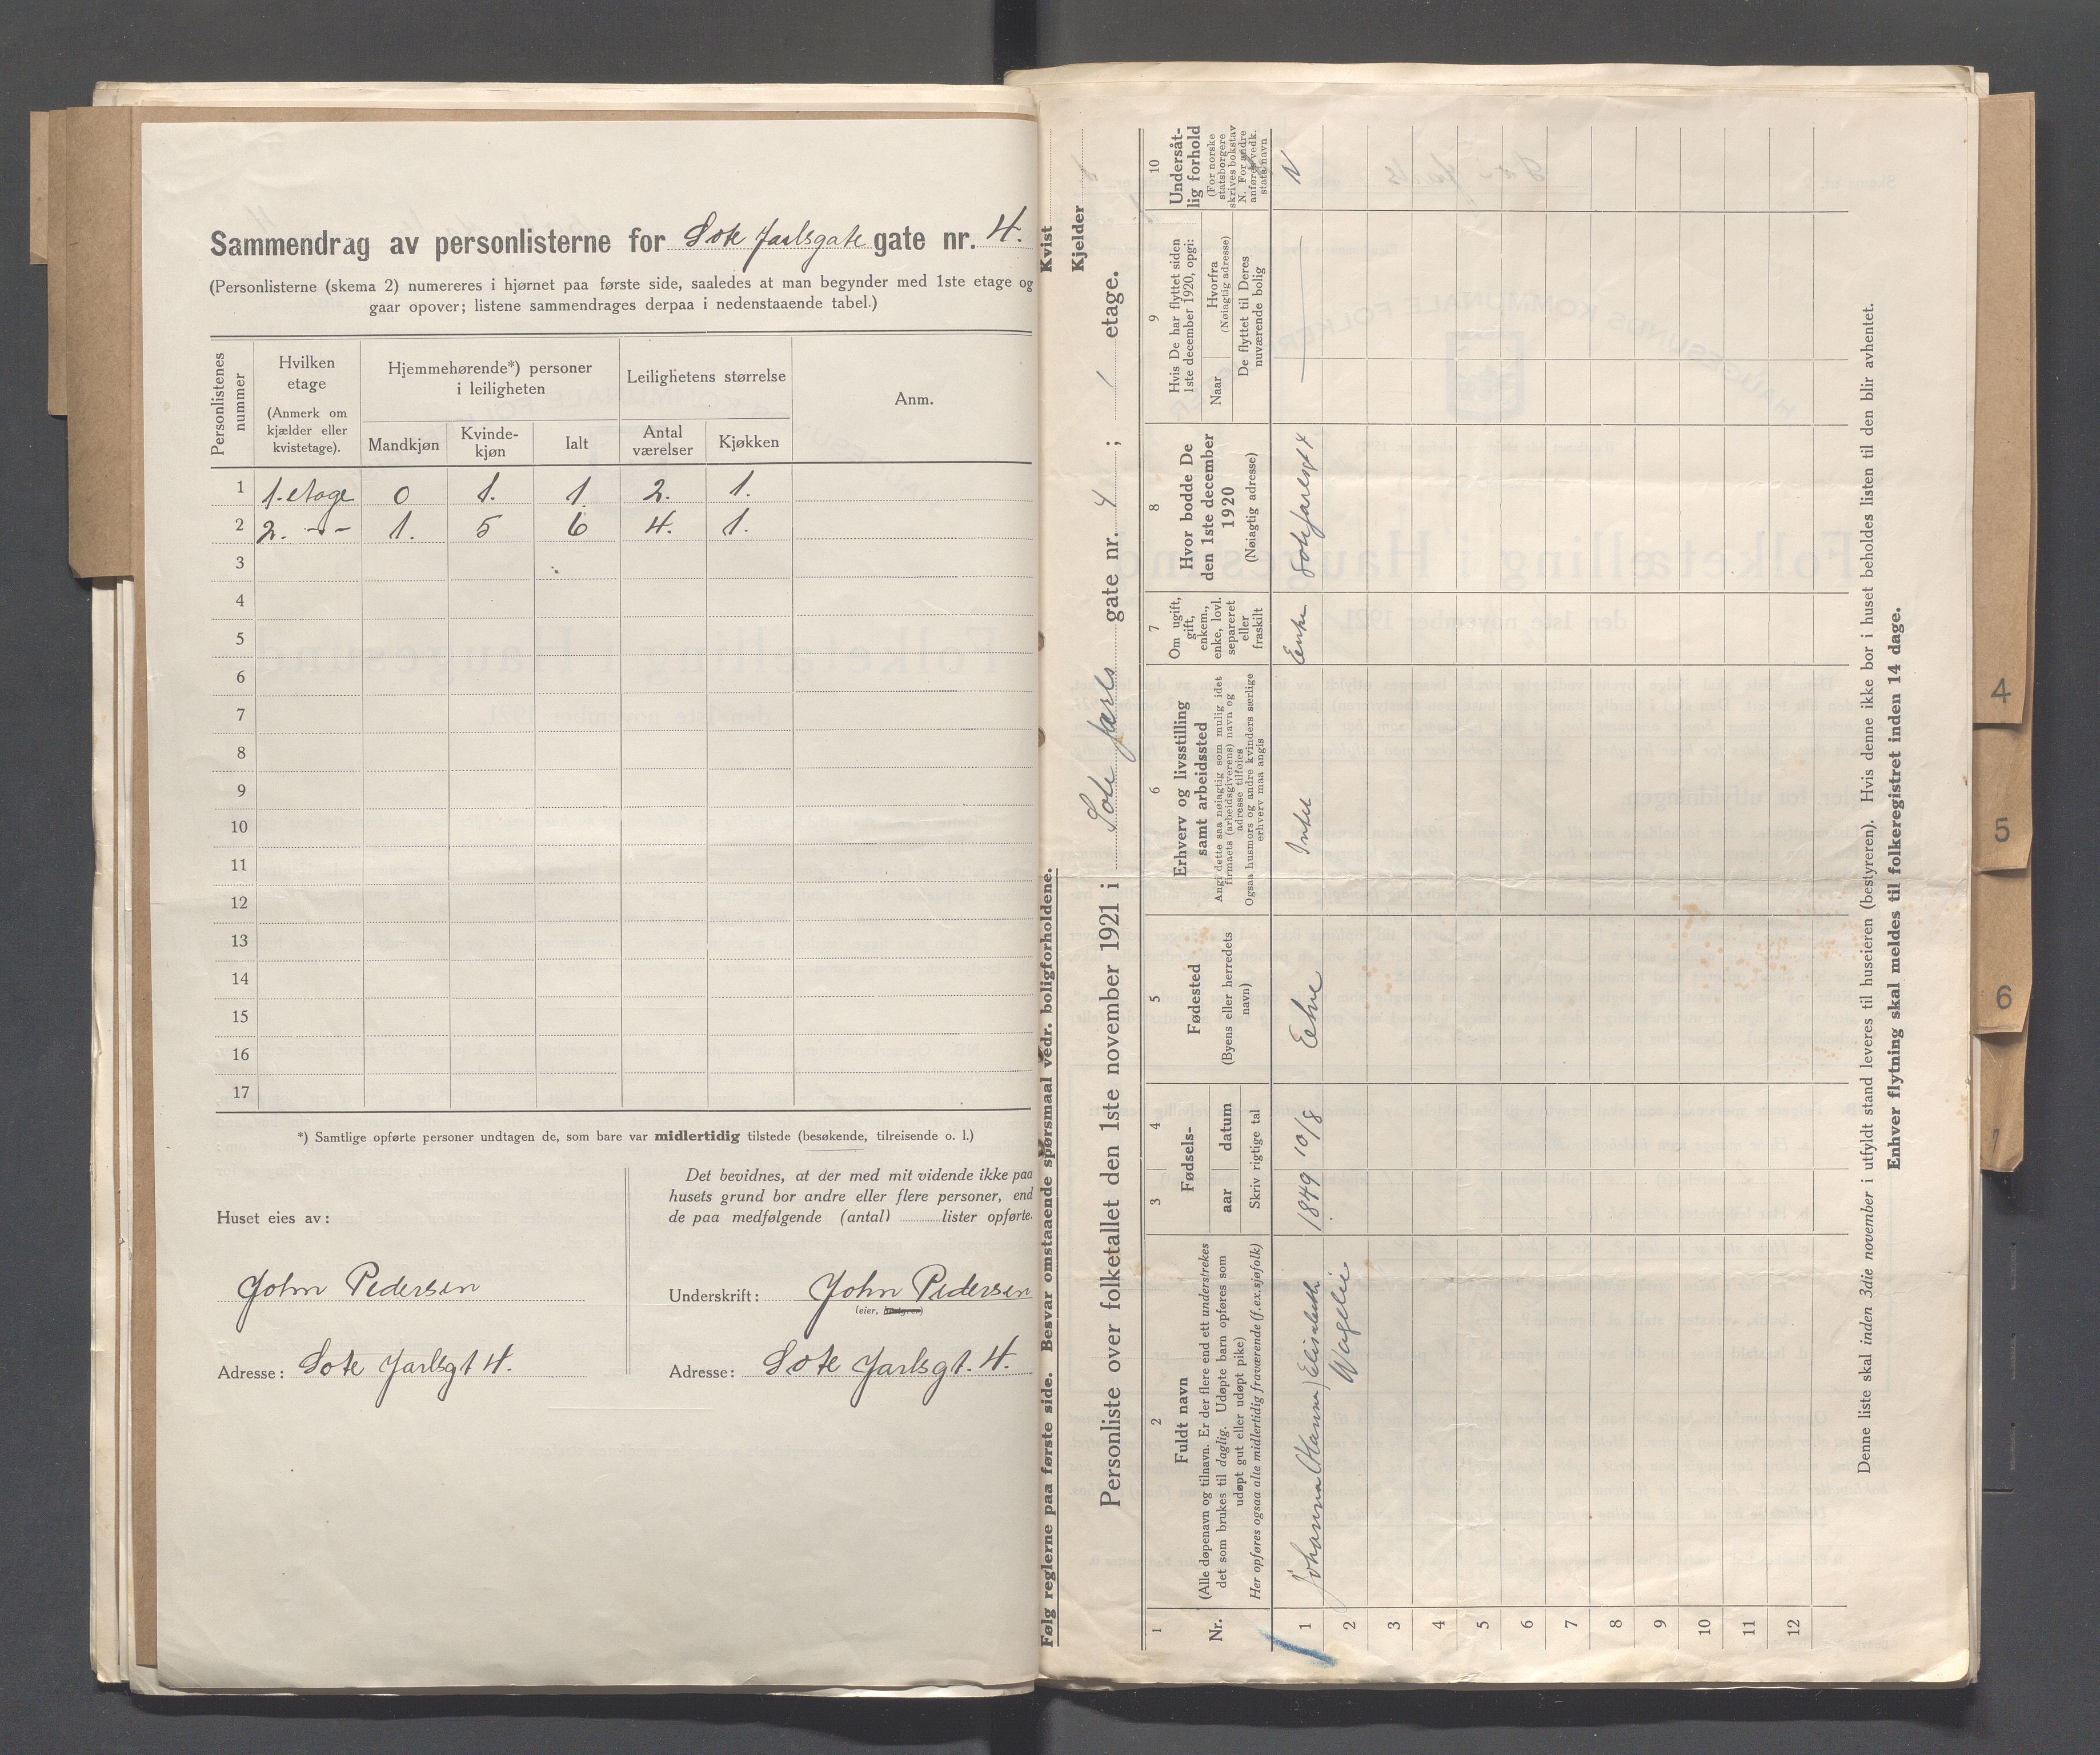 Sammendrag av personlisterne for Sote Jarlsgate gate nr. 4.
(Personlisterne (skema 2) numereres i hjørnet paa første side, saaledes at man begynder med 1ste etage og
gaar opover; listene sammendrages derpaa i nedenstaaende tabel.)
Personlistenes nummer
Hvilken etage
(Anmerk om kjælder eller kvistetage).
Hjemmehørende*) personer i leiligheten
Mandkjøn
Kvinde-kjøn
Ialt
Leilighetens størrelse
Antal værelser
Kjøkken
Anm.
1 1. etage 0 1. 1 2. 1.
2 2. -"- 1. 5 6 4. 1.
3
4
5
6
7
8
9
10
11
12
13
14
15
16
17
*) Samtlige opførte personer undtagen de, som bare var midlertidig tilstede (besøkende, tilreisende o. l.)
Huset eies av:
John Pedersen
Adresse: Sote Jarlsgt 4.
Det bevidnes, at der med mit vidende ikke paa
husets grund bor andre eller flere personer, end
de paa medfølgende (antal) lister opførte.
Underskrift: John Pedersen
(eier, bestyrer)
Adresse: Sote Jarlsgt. 4.
Følg reglerne paa første side. Besvar omstaaende spørsmaal vedr. boligforholdene.
Kvist
Kjelder
Personliste over folketallet den 1ste november 1921 i Sote Jarls gate nr. 4; 1 etage.
1
Nr.
2
Fuldt navn
(Alle døpenavn og tilnavn. Er der flere end ett understrekes
det som brukes til daglig. Udøpte barn opføres som
udøpt gut eller udøpt pike)
Her opføres ogsaa alle midlertidig fraværende (f.ex. sjøfolk)
3 4
Fødsels-
aar datum
Skriv rigtige tal
5
Fødested
(Byens eller herredets
navn)
6
Erhverv og livsstilling
samt arbeidssted
Angi dette saa nøiagtig som mulig idet
firmaets (arbeidsgiverens) navn og
adresse tilføies
Ogsaa husmors og andre kvinders særlige
erhverv maa angis
7
Om ugift,
gift,
enkem.,
enke, lovl.
separeret
eller
fraskilt
8
Hvor bodde De
den 1ste december
1920
(Nøiagtig adresse)
9
Hvis De har flyttet siden
1ste december 1920, opgi:
Naar
Hvorfra
(Nøiagtig adresse)
De flyttet til Deres
nuværende bolig
10
Undersåt-
lig forhold
(For norske
statsborgere
skrives bokstav
N. For andre
anføres vedk.
stats navn
1 Johanna (Hanna) Elisabeth 1849 10/8 Eelne Intet Enke Sote Jarlsgt 4 N
2 Wagelie
3
4
5
6
7
8
9
10
11
12
Denne liste skal inden 3die november i utfyldt stand leveres til huseieren (bestyreren). Hvis denne ikke bor i huset beholdes listen til den blir avhentet.
Enhver flytning skal meldes til folkeregistret inden 14 dage.
4
5
6